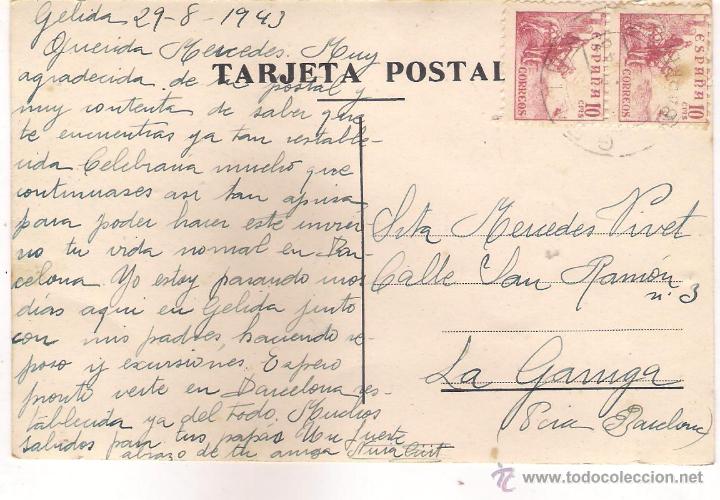 Gelida 29-8-1943
Querida Mercedes. Muy
agradecida de tu postal y
muy contenta de saber que
te encuentras ya tan restable-
cida. Celebraria mucho que
continuases asi tan aprisa
para poder hacer este invier
no tu vida normal en Bar-
celona. Yo estoy pasando unos
dias aqui en Gelida junto
con mis padres, haciendo re-
poso y excursiones. Espero
pronto verte en Barcelona res-
tablecida ya del todo. Muchos
saludos para tus papás. Un fuerte
abrazo de tu amiga Nuria
TARJETA POSTAL
ESPAÑA
CORREOS
10
CTMS
ESPAÑA
CORREOS
10
CTMS
Srta Mercedes Vivet
Calle San Ramón
n. 3
La Garriga
(Pcia Barcelona)
todocoleccion
www.todocoleccion.net